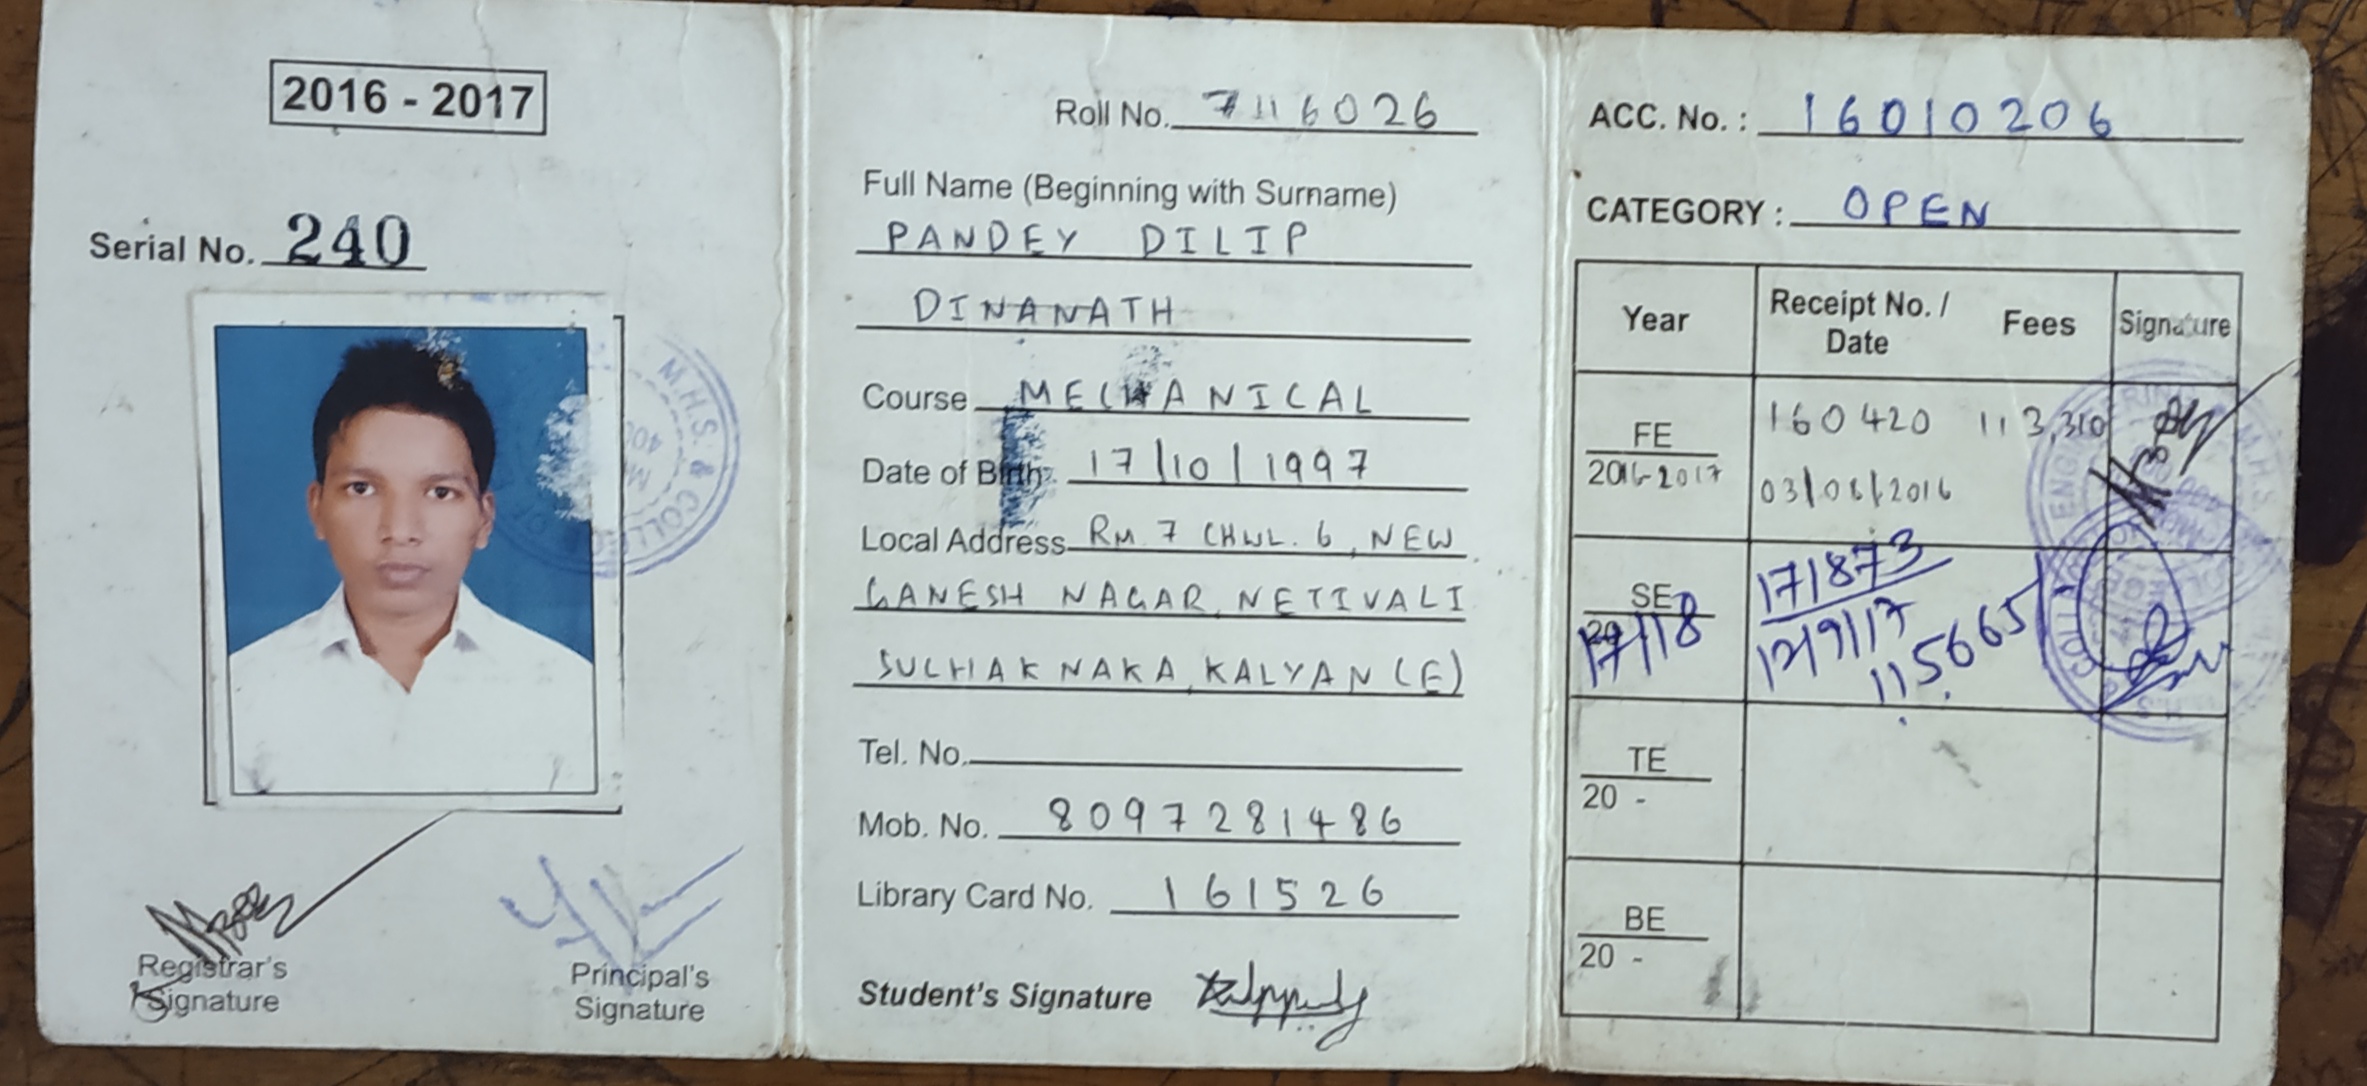 2016 - 2017
Serial No. 240
M.H.S. & COLLEGE OF
400
Registrar's
Signature
Principal's
Signature
Roll No. 7116026
Full Name (Beginning with Surname)
PANDEY DILIP
DINANATH
Course MECHANICAL
Date of Birth: 17/10/1997
Local Address RM. 7 CHWL. 6, NEW
GANESH NAGAR, NETIVALI
SUCHAK NAKA, KALYAN (E)
Tel. No.
Mob. No. 8097281486
Library Card No. 161526
Student's Signature
ACC. No. : 16010206
CATEGORY : OPEN
Year Receipt No. / Date Fees Signature
FE 160420 113,310
2016-2017 03/08/2016
SE 171873
17/18 12/9/17
115665/
TE
20 -
BE
20 -